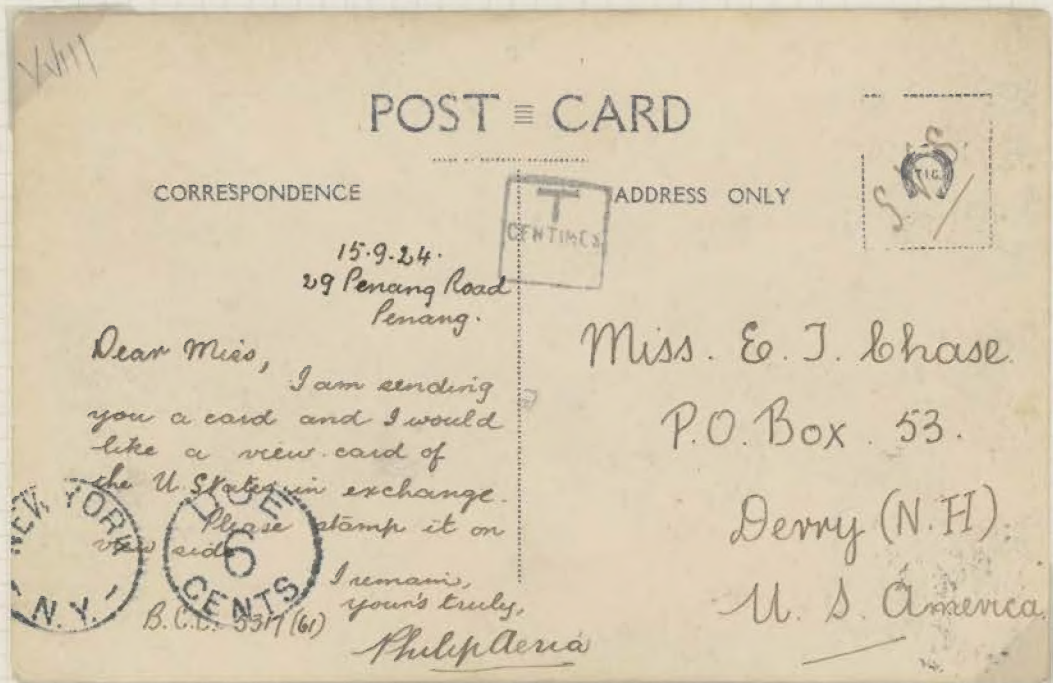 POST CARD
CORRESPONDENCE
ADDRESS ONLY
T
CENTIMES
TIC
15.9.24.
29 Penang Road
Penang.
Dear Miss,
I am sending
you a card and I would
like a view card of
the U. States in exchange.
Please stamp it on
view side
I remain,
your's truly,
Philip Aeria
B.C.C. 5317 (61)
NEW YORK
N.Y.
DUE
6
CENTS
Miss. E. T. Chase.
P.O. Box. 53.
Derry (N.H).
U. S. America